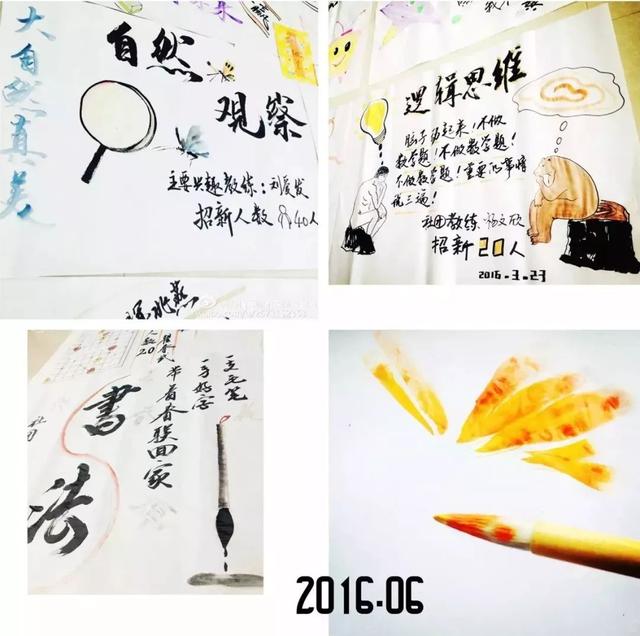 大自然真美
自然
观察
主要兴趣教练：刘庆发
招新人数 40人
逻辑思维
脑子动起来，不做
数学题！不做数学题！
不做数学题！重要的事情
说三遍！
社团教练 杨文欣
招新20人
2016.3.23
20
书法
带着春联回家
一手好字
一支毛笔
2016.06